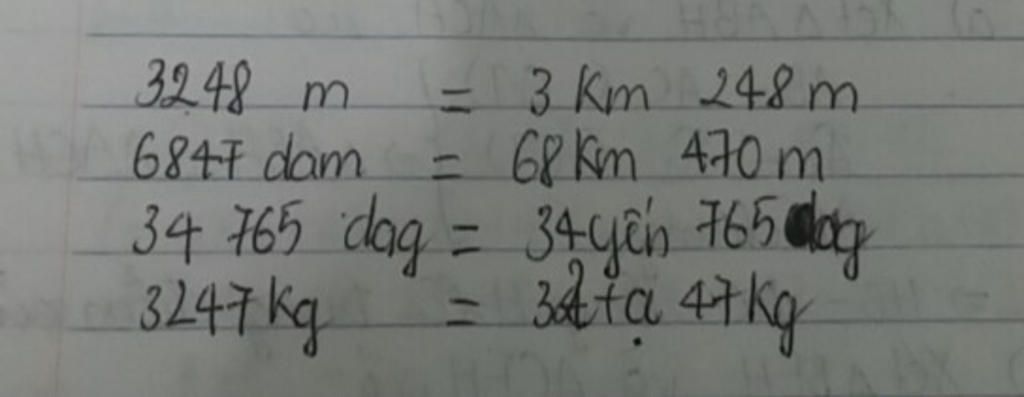 3248 m = 3 Km 248 m
6847 dam = 68 Km 470 m
34 765 dag = 34 yến 765 dag
3247 kg = 32 tạ 47 kg